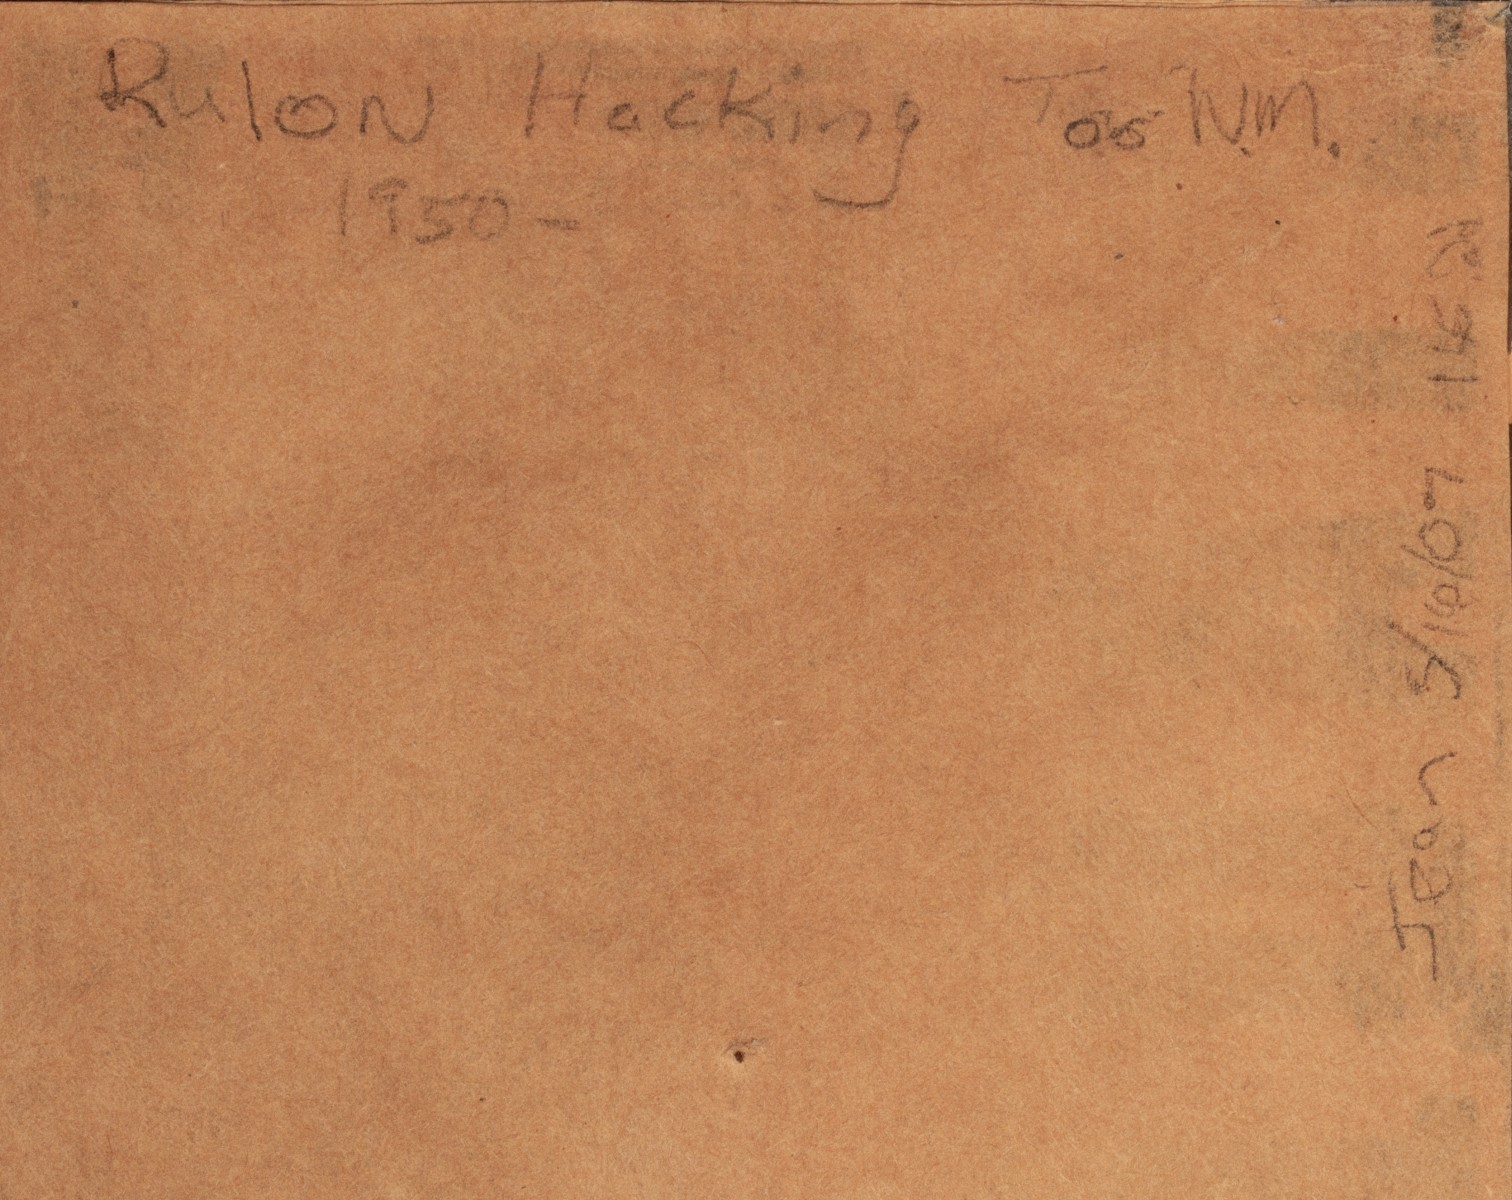 Rulon Hacking Taos N.M.
1950-
Jean 5/16/07